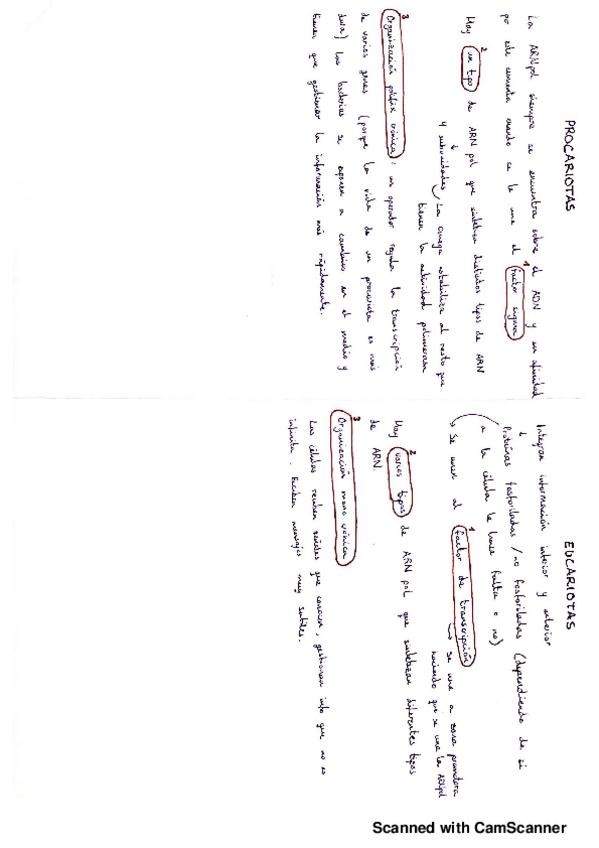 PROCARIOTAS
La ARNpol siempre se encuentra sobre el ADN y su afinidad
po este aumenta cuando se le une el factor sigma 1
2
Hay un tipo de ARN pol que sintetiza distintos tipos de ARN
4 subunidades La omega estabiliza al resto que
tienen la actividad polimerasa
3
Organización policistrónica: un operador regula la transcripción
de varios genes (porque la vida de un procariota es más
dura) las bacterias se exponen a cambios en el medio y
tienen que gestionar la información más rápidamente.
EUCARIOTAS
Integran información interior y exterior
Proteínas fosforiladas / no fosforiladas (dependiendo de si
a la célula le hace falta o no)
1
Se unen al factor de transcripción → se une a zona promotora
haciendo que se una la ARNpol
2
Hay varios tipos de ARN pol que sintetizan diferentes tipos
de ARN.
3
Organización mono
Las células reciben señales que conocen, gestionan info que no es
infinita. Reciben mensajes muy sutiles.
Scanned with CamScanner